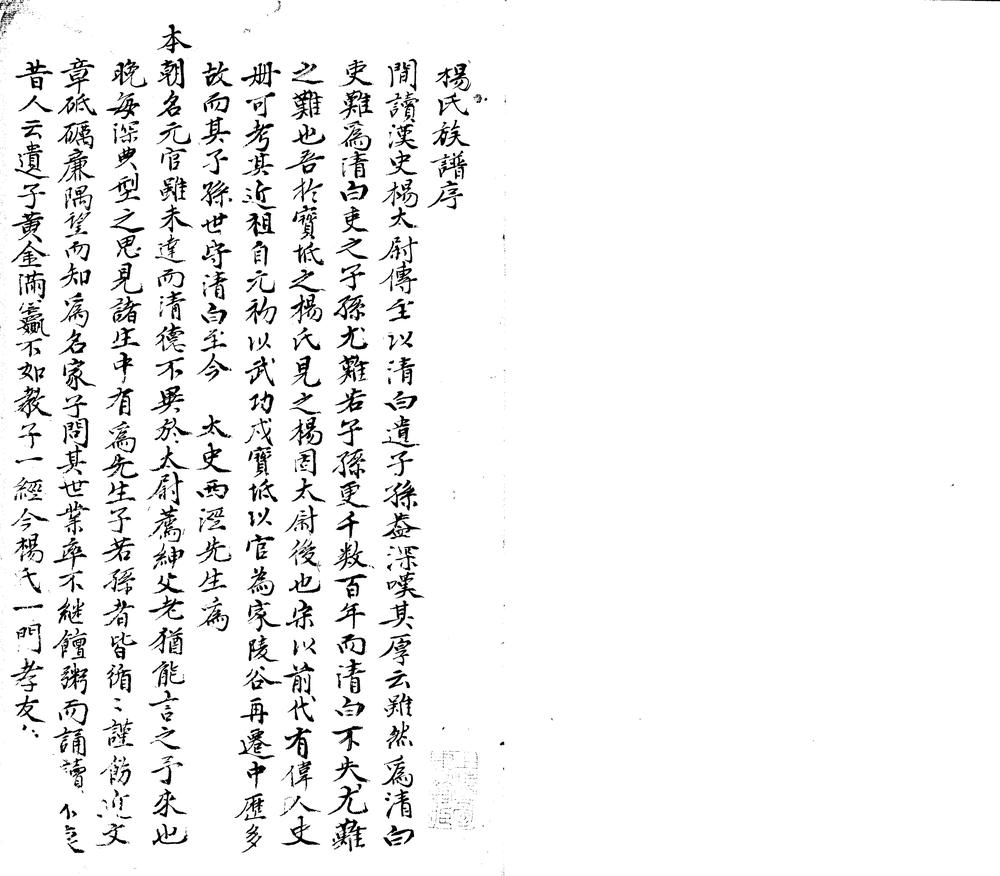 楊氏族譜序
間讀漢史楊太尉傳至以清白遺子孫益深嘆其厚云雖然為清白
吏難為清白吏之子孫尤難若子孫更千数百年而清白不失尤難
之難也吾於寶坻之楊氏見之楊固太尉後也宋以前代有偉人史
册可考其近祖自元初以武功戍寶坻以官為家陵谷再遷中歷多
故而其子孫世守清白至今 太史西澀先生為
本朝名元官雖未達而清德不異於太尉薦紳父老猶能言之予來也
晚每深典型之思見諸生中有為先生子若孫者皆循〻謹飭近文
章砥礪廉隅望而知為名家子問其世業率不継饘粥而誦讀不
昔人云遺子黃金滿籯不如教子一經今楊氏一門孝友